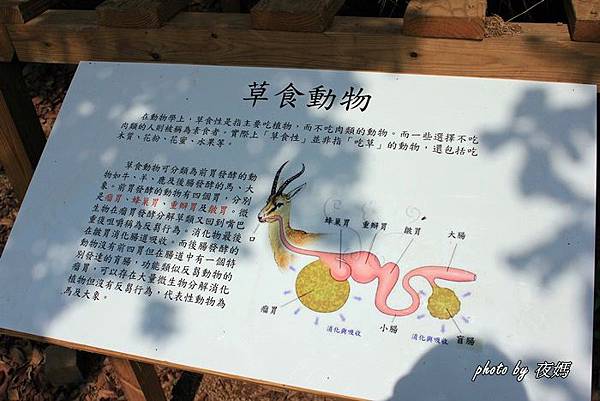 草食動物
在動物學上，草食性是指主要吃植物，而不吃肉類的動物。而一些選擇不吃
肉類的人則被稱為素食者。實際上「草食性」並非指「吃草」的動物，還包括吃
木質、花粉、花蜜、水果等。
草食動物可分類為前胃發酵的動
物如牛、羊、鹿及後腸發酵的馬、大
象。前胃發酵的動物有四個胃，分別
是瘤胃、蜂巢胃、重瓣胃及皺胃。微
生物在瘤胃發酵分解草類又回到嘴巴
重復咀嚼稱為反芻行為。消化物最後
在皺胃消化腸道吸收。而後腸發酵的
動物沒有前四胃但在腸道中有一個特
別發達的盲腸，功能類似反芻動物的
瘤胃，可以存在大量微生物分解消化
植物但沒有反芻行為，代表性動物為
馬及大象。
口
蜂巢胃
重瓣胃
皺胃
大腸
瘤胃
消化與吸收
小腸
消化與吸收
盲腸
photo by 夜媽